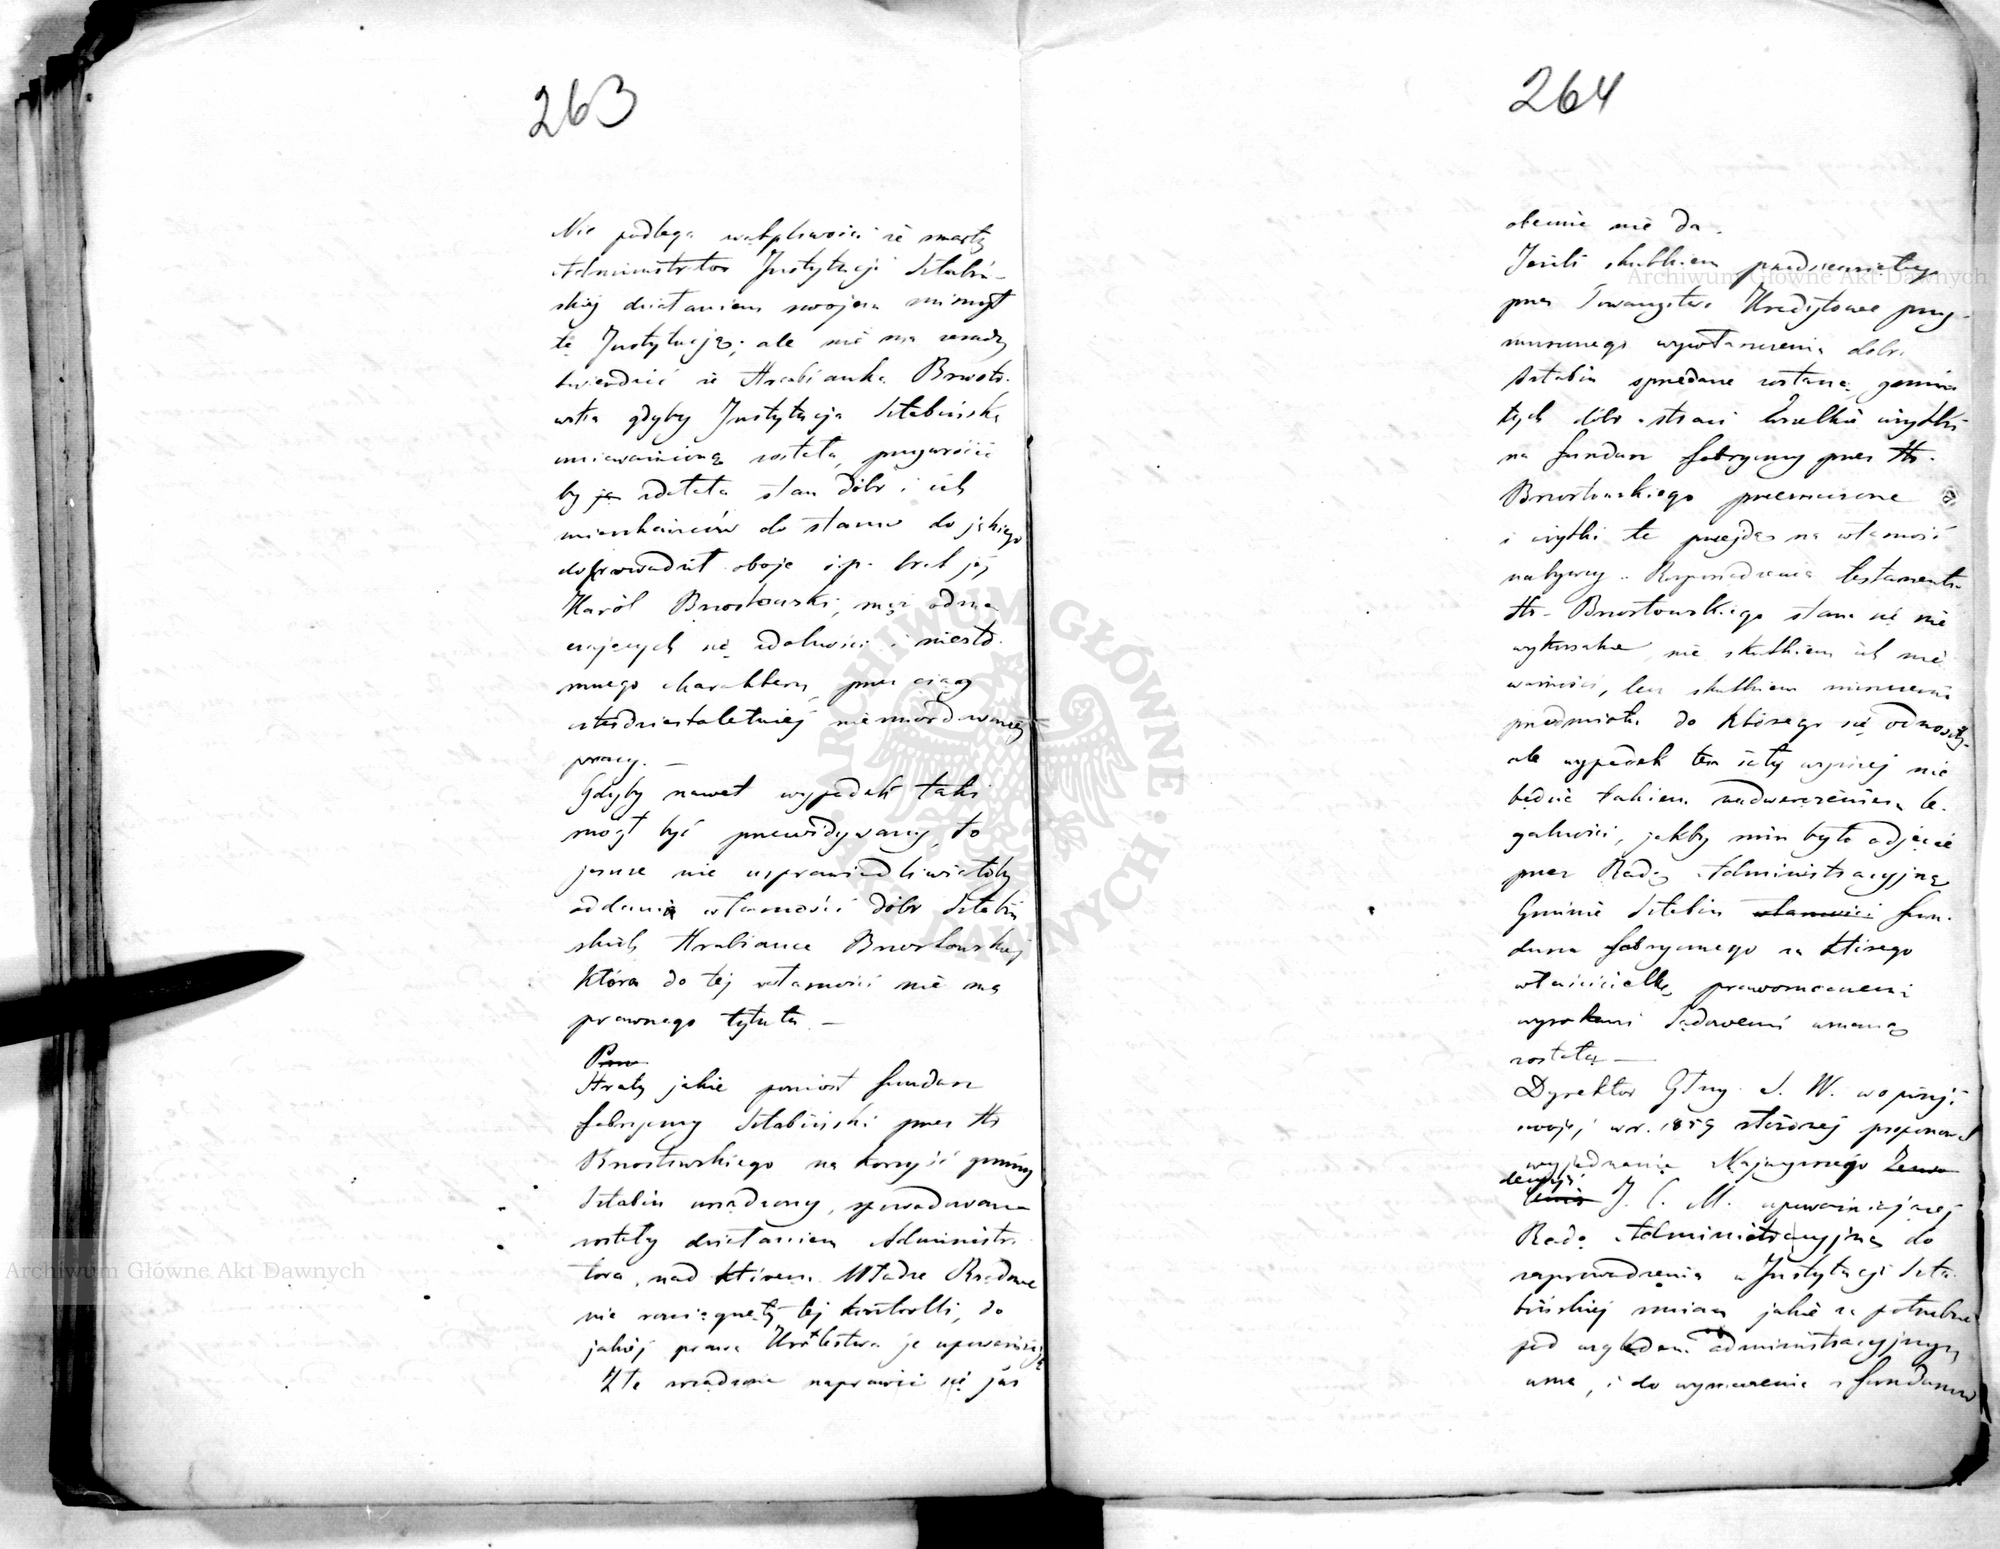 263
Nie podlega wątpliwości że zmarły
Administrator Instytucji Sztabiń-
skiej działaniem swojem niszczył
tę Instytucję; ale nie ma zasady
twierdzić że Hrabianka Brzosto-
wska gdyby Instytucja Sztabińska
unieważnioną została, przywrócić
by zdołała stan dóbr i ich
mieszkańców do stanu do jakiego
doprowadził oboje ś.p. brat jej
Karól Brzostowski, mąż odzna
czających się zdolności i niezło-
mnego charakteru, przez ciąg
niezmordowanej
pracy. —
Gdyby nawet wypadek taki
mógł być przewidywany, to
jeszcze nie usprawiedliwiałoby
oddania własności dóbr Sztabiń
skich Hrabiance Brzostowskiej
która do tej własności nie ma
prawnego tytułu —
Straty jakie poniósł fundusz
fabryczny Sztabiński przez Hr
Brzostowskiego na korzyść gminy
Sztabin urządzony, spowodowane
zostały działaniem Administra
tora, nad którem Władze Rządowe
nie rozciągnęły tej kontrolli, do
jakiej prawa Królestwa je upoważniają
Złe zrządzone naprawić się już
264
obecnie nie da.
Jeżeli skutkiem przedsięwziętego
przez Towarzystwo Kredytowe przy-
musowego wywłaszczenia dobra
Sztabin sprzedane zostaną, gmina
tych dóbr straci wszelkie użytki
na fundusz fabryczny przez Hr.
Brzostowskiego przeznaczone
i użytki te przejdą na własność
nabywcy. Rozporządzenia testamentu
Hr. Brzostowskiego staną się nie
wykonalne, nie skutkiem ich nie
ważności, lecz skutkiem zniszczenia
przedmiotu do którego się odnosiły
ale wypadek ten
będzie takiem nadwerężeniem le-
galności, jakby niem było odjęcie
przez Radę Administracyjną
Gminie Sztabin własności fun-
duszu fabrycznego za którego
właścicielkę prawomocnemi
wyrokami Sądowemi uznaną
została —
Dyrektor Głny. S. W. w opinji
swojej w r. 1859 złożonej proponował
wyjednanie Najwyższego
decyzji J. C. M. upoważniającej
Radę Administracyjną do
zaprowadzenia w Instytucji Szta-
bińskiej zmian jakie za potrzebne
pod względem administracyjnym
uzna, i do wyznaczenia z funduszów
Archiwum Główne Akt Dawnych
Archiwum Główne Akt Dawnych
ARCHIWUM GŁÓWNE AKT DAWNYCH